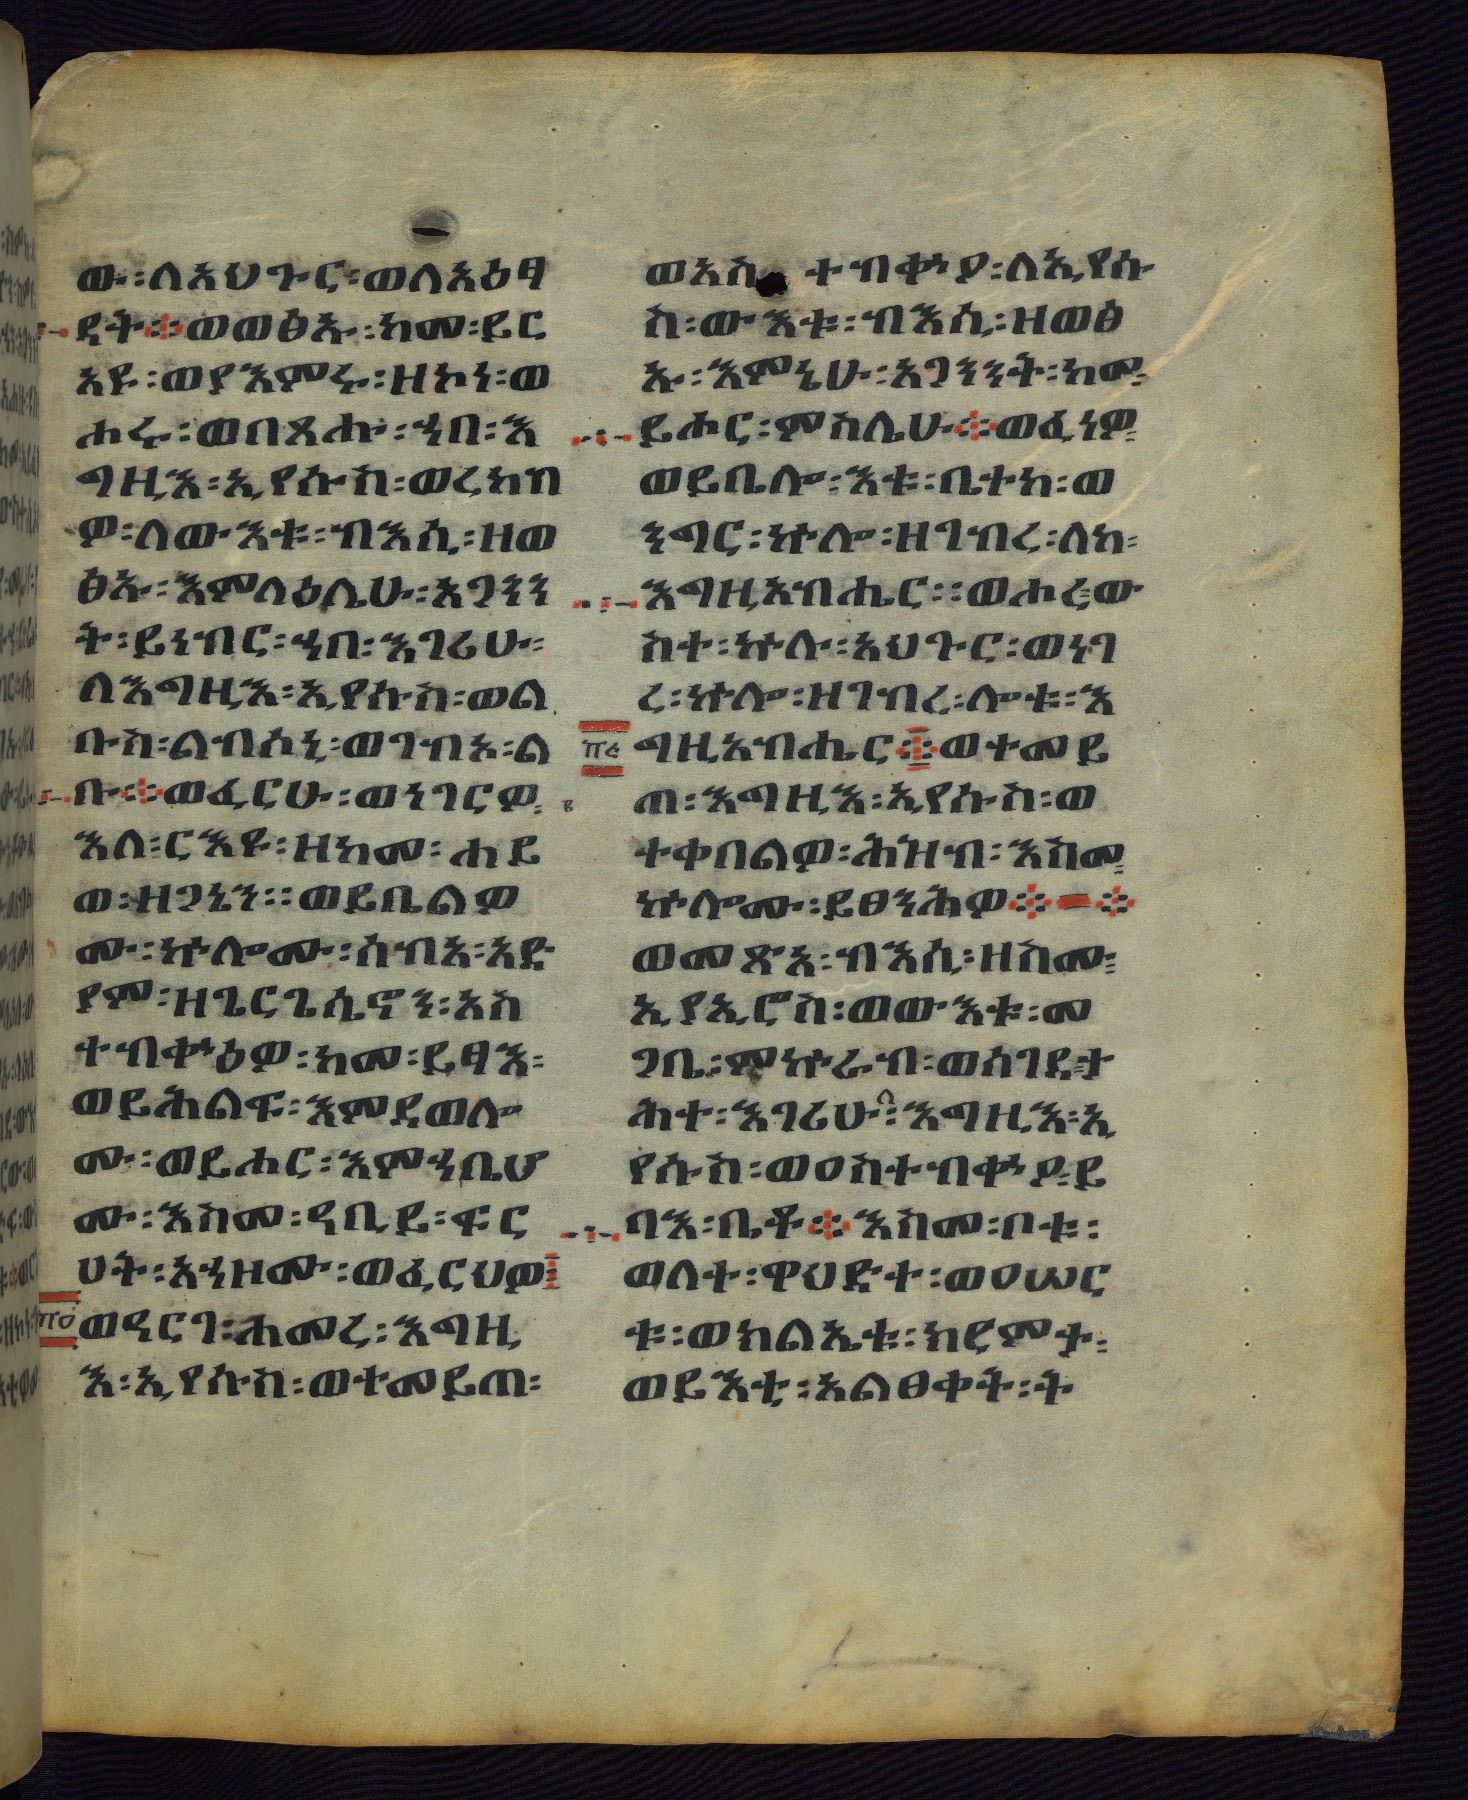 ው፡ለአህጉር፡ወለአዕፃ
ዳት፨ወወፅኡ፡ከመ፡ይር
አዩ፡ወያእምሩ፡ዘኮነ፡ወ
ሐሩ፡ወበጽሑ፡ኀበ፡እ
ግዚእ፡ኢየሱስ፡ወረከብ
ዎ፡ለውእቱ፡ብእሲ፡ዘወ
ፅኡ፡እምላዕሌሁ፡አጋንን
ት፡ይነብር፡ኀበ፡እገሪሁ፡
ለእግዚእ፡ኢየሱስ፡ወል
ቡስ፡ልብሰኒ፡ወገብአ፡ል
ቡ፨ወፈርሁ፡ወነገርዎ፡
እለ፡ርእዩ፡ዘከመ፡ሐይ
ወ፡ዘጋኔን፡፡ወይቤልዎ
ሙ፡ኵሎሙ፡ሰብአ፡አድ
ያም፡ዘጌርጌሴኖን፡አስ
ተብቍዕዎ፡ከመ፡ይፃእ፡
ወይሕልፍ፡እምደወሎ
ሙ፡ወይሐር፡እምኀቤሆ
ሙ፡እስመ፡ዓቢይ፡ፍር
ሀት፡አኀዞሙ፡ወፈርህወ
፹ወዓርገ፡ሐመረ፡እግዚ
እ፡ኢየሱስ፡ወተመይጠ፡
ወአስ ተብቍዖ፡ለኢየሱ
ስ፡ውእቱ፡ብእሲ፡ዘወፅ
ኡ፡እምኔሁ፡አጋንንት፡ከመ፡
ይሖር፡ምስሌሁ፨ወፈነዎ፡
ወይቤሎ፡እቱ፡ቤተከ፡ወ
ንግር፡ኵሎ፡ዘገብረ፡ለከ፡
እግዚአብሔር፡፡ወሖረ፡ው
ስተ፡ኵሉ፡አህጉር፡ወነገ
ረ፡ኵሎ፡ዘገብረ፡ሎቱ፡እ
ግዚአብሔር፨ወተመይ
ጠ፡እግዚእ፡ኢየሱስ፡ወ
ተቀበልዎ፡ሕዝብ፡እስመ፡
ኵሎሙ፡ይፀንሕዎ፨-፨
ወመጽአ፡ብእሲ፡ዘስሙ፡
ኢያኢሮስ፡ወውእቱ፡መ
ጋቤ፡ምኵራብ፡ወሰገደ፡ታ
ሕተ፡እገሪሁ፡ለ፡እግዚእ፡ኢ
የሱስ፡ወዐስተብቍዖ፡ይ
ባእ፡ቤቶ፨እስመ፡ቦቱ፡
ወለተ፡ዋህድተ፡ወዐሠር
ቱ፡ወክልኤቱ፡ክረምታ፡
ወይእቲ፡አልፀቀት፡ት